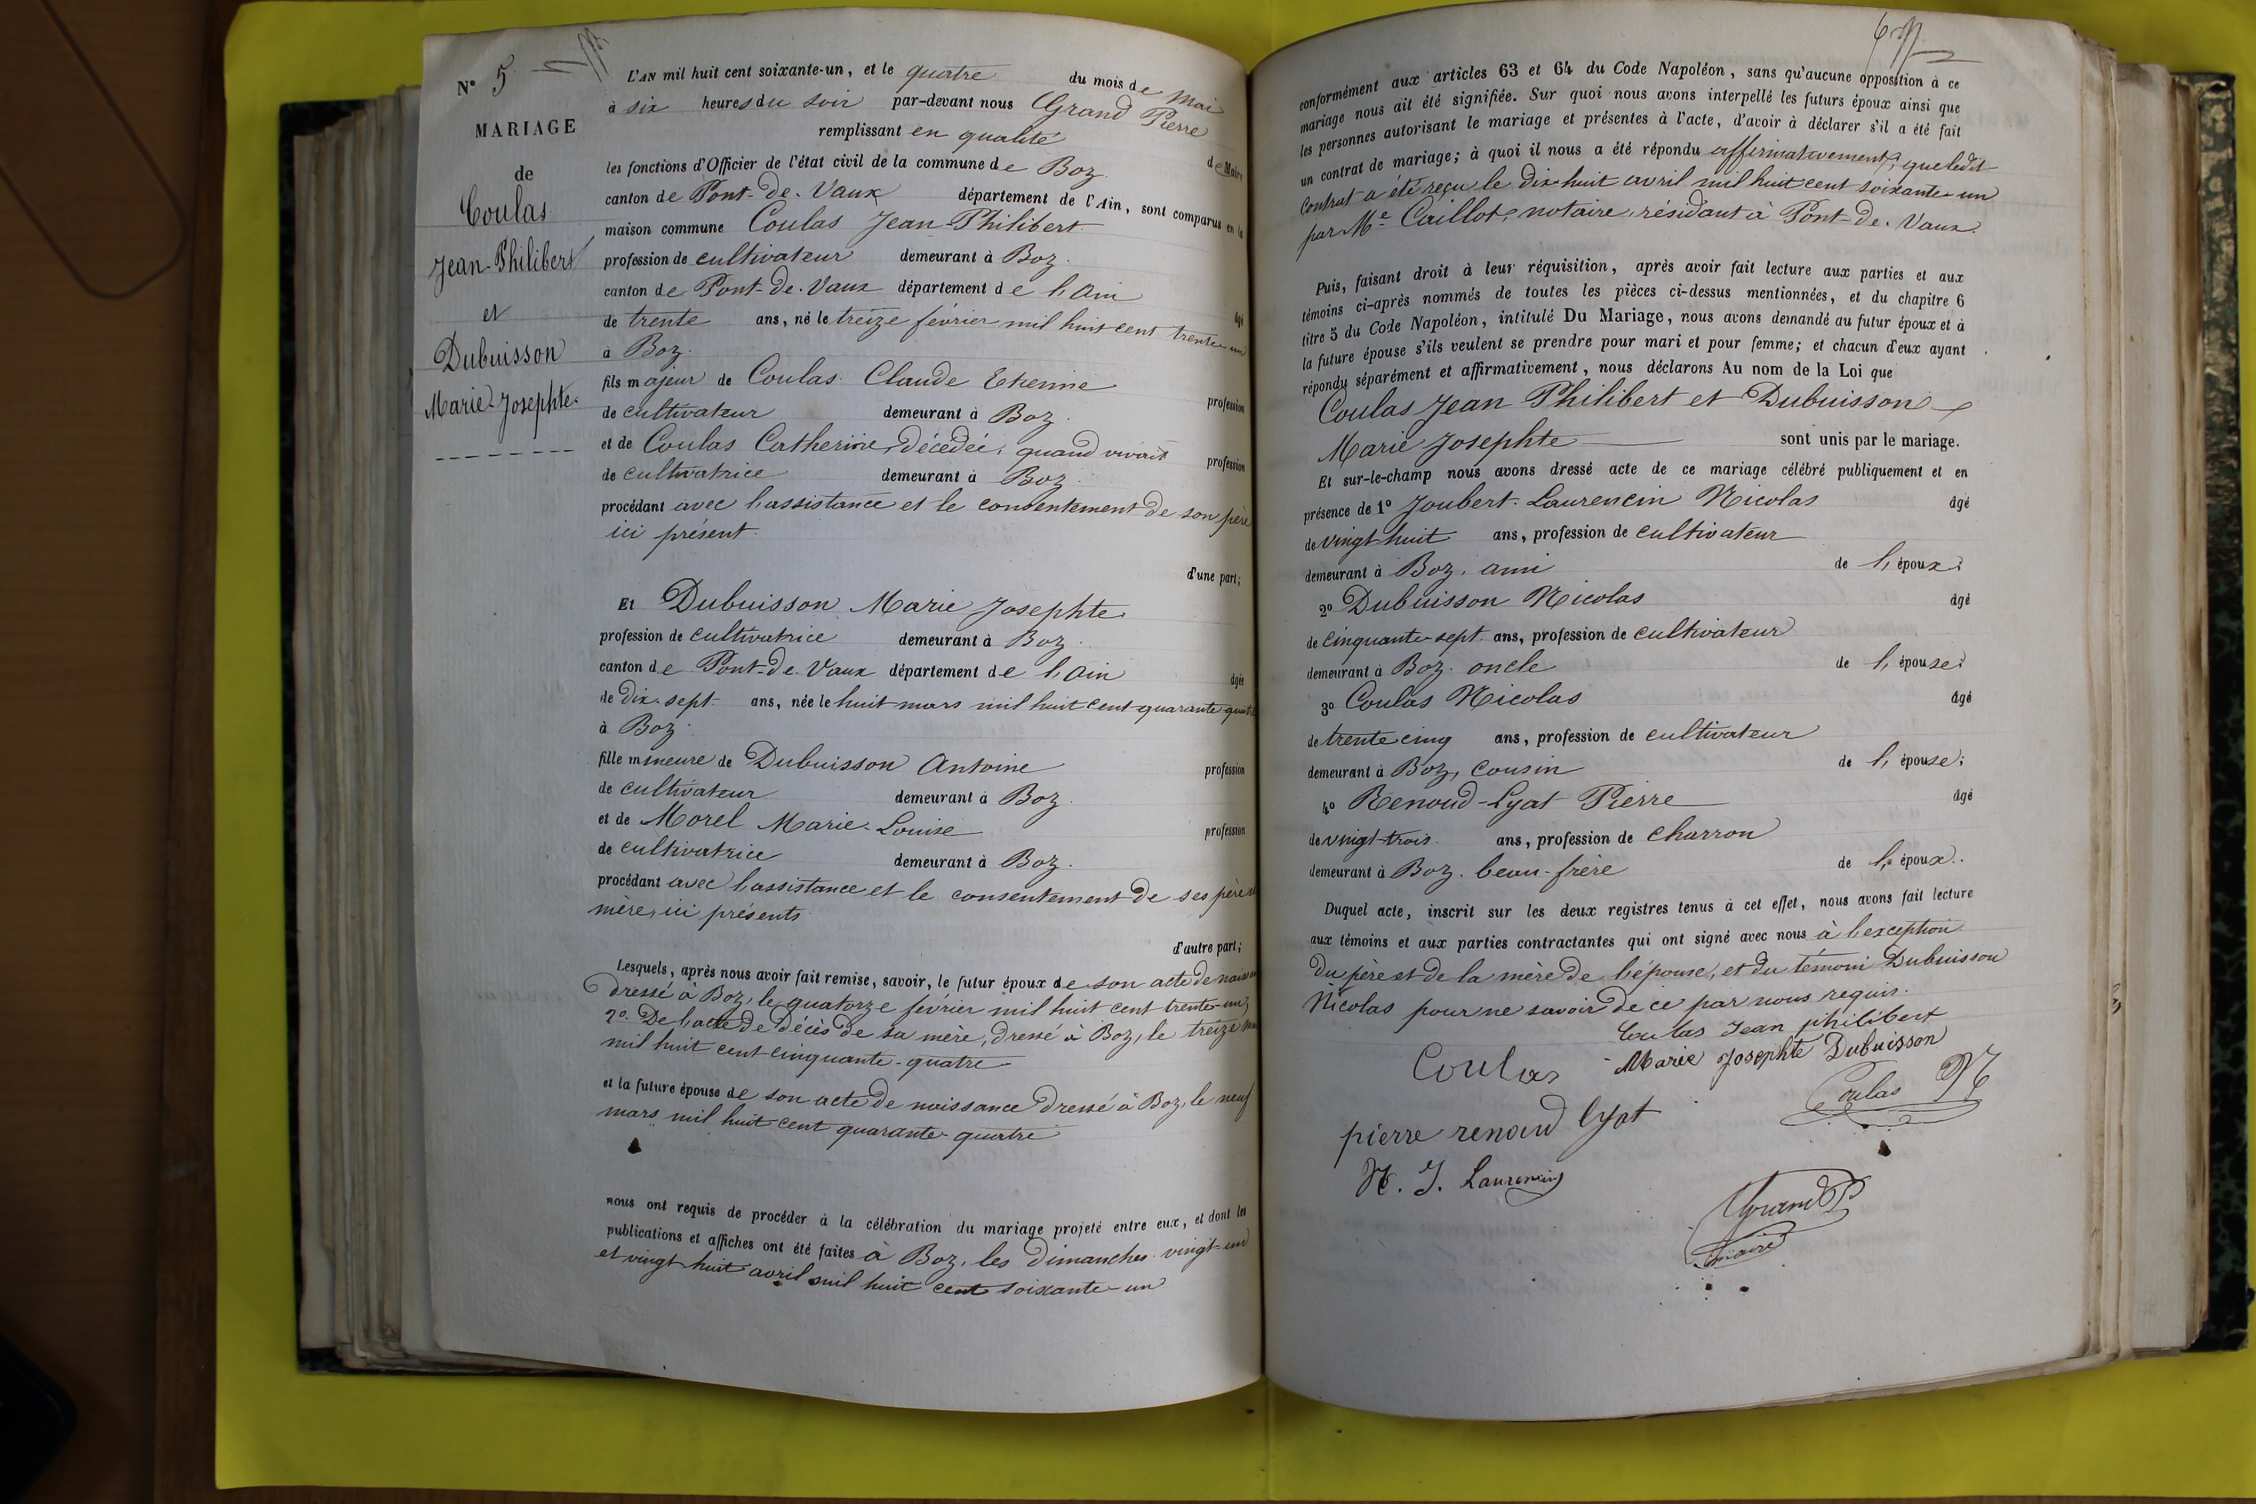 N° 5
MARIAGE
de
Coulas
Jean-Philibert
et
Dubuisson
Marie-Josephte.
L'AN mil huit cent soixante-un, et le quatre du mois de Mai
à six heures du soir par-devant nous Grand Pierre
remplissant en qualité de Maire
les fonctions d'Officier de l'état civil de la commune de Boz
canton de Pont-de-Vaux département de l'Ain, sont comparus en la
maison commune Coulas Jean-Philibert
profession de cultivateur demeurant à Boz.
canton de Pont-de-Vaux département de l'Ain âgé
de trente ans, né le treize février mil huit cent trente-un
à Boz.
fils majeur de Coulas Claude Etienne profession
de cultivateur demeurant à Boz.
et de Coulas Catherine, décédée, quand vivait profession
de cultivatrice demeurant à Boz.
procédant avec l'assistance et le consentement de son père
ici présent.
d'une part;
Et Dubuisson Marie Josephte
profession de cultivatrice demeurant à Boz.
canton de Pont-de-Vaux département de l'Ain âgée
de dix-sept ans, née le huit mars mil huit cent quarante quatre
à Boz.
fille mineure de Dubuisson Antoine profession
de cultivateur demeurant à Boz.
et de Morel Marie-Louise profession
de cultivatrice demeurant à Boz.
procédant avec l'assistance et le consentement de ses père et
mère, ici présents
d'autre part;
Lesquels, après nous avoir fait remise, savoir, le futur époux de son acte de
dressé à Boz, le quatorze février mil huit cent trente-un,
2° De l'acte de décès de sa mère, dressé à Boz, le treize
mil huit cent cinquante-quatre
et la future épouse de son acte de naissance dressé à Boz, le neuf
mars mil huit cent quarante-quatre
nous ont requis de procéder à la célébration du mariage projeté entre eux, et dont les
publications et affiches ont été faites à Boz, les dimanches vingt-un
et vingt-huit avril mil huit cent soixante-un
conformément aux articles 63 et 64 du Code Napoléon, sans qu'aucune opposition à ce
mariage nous ait été signifiée. Sur quoi nous avons interpellé les futurs époux ainsi que
les personnes autorisant le mariage et présentes à l'acte, d'avoir à déclarer s'il a été fait
un contrat de mariage; à quoi il nous a été répondu affirmativement, que ledit
Contrat a été reçu le dix-huit avril mil huit cent soixante-un
par Me Caillot, notaire, résidant à Pont-de-Vaux.
Puis, faisant droit à leur réquisition, après avoir fait lecture aux parties et aux
témoins ci-après nommés de toutes les pièces ci-dessus mentionnées, et du chapitre 6
titre 5 du Code Napoléon, intitulé Du Mariage, nous avons demandé au futur époux et à
la future épouse s'ils veulent se prendre pour mari et pour femme; et chacun d'eux ayant
répondu séparément et affirmativement, nous déclarons Au nom de la Loi que
Coulas Jean Philibert et Dubuisson
Marie Josephte sont unis par le mariage.
Et sur-le-champ nous avons dressé acte de ce mariage célébré publiquement et en
présence de 1° Joubert-Laurencin Nicolas âgé
de vingt huit ans, profession de cultivateur
demeurant à Boz, ami de l'époux;
2° Dubuisson Nicolas âgé
de cinquante-sept ans, profession de cultivateur
demeurant à Boz. oncle de l'épouse;
3° Coulas Nicolas âgé
de trente cinq ans, profession de cultivateur
demeurant à Boz, cousin de l'épouse;
4° Renoud-Lyat Pierre âgé
de vingt-trois ans, profession de charron
demeurant à Boz. beau-frère de l'époux.
Duquel acte, inscrit sur les deux registres tenus à cet effet, nous avons fait lecture
aux témoins et aux parties contractantes qui ont signé avec nous à l'exception
du père et de la mère de l'épouse, et du témoin Dubuisson
Nicolas pour ne savoir de ce par nous requis.
Coulas Jean philibert
Coulas Marie Josephte Dubuisson
Coulas N
pierre renoud lyat
N. J. Laurencin
Grand P
maire